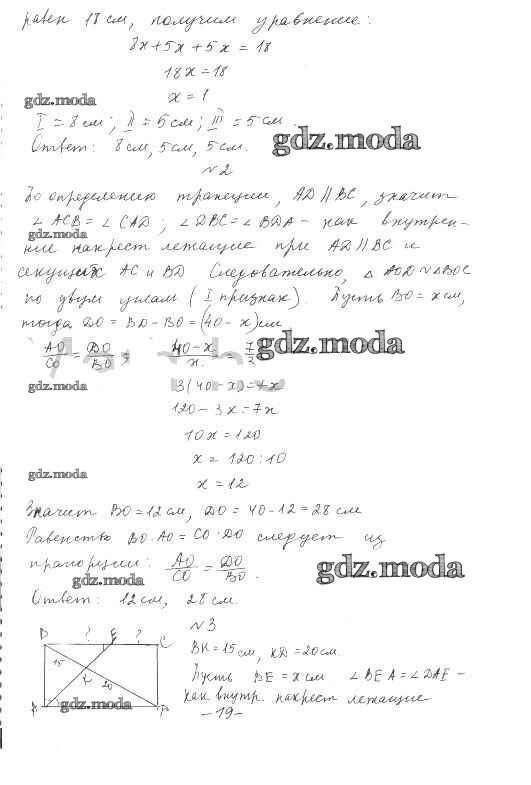 равен 18 см, получим уравнение:
8x+5x+5x=18
18x=18
x=1
gdz.moda
I=8см; II=5см; III=5см.
Ответ: 8см, 5см, 5см.
gdz.moda
№2
По определению трапеции, AD||BC, значит
∠ACB=∠CAD; ∠DBC=∠BDA - как внутрен-
gdz.moda
ние накрест лежащие при AD||BC и
секущих AC и BD Следовательно, △AOD∾△BOC
по двум углам (I признак). Пусть BO=xсм,
тогда DO=BD-BO=(40-x)см
AO/CO=DO/BO; 40-x/x=7/3
gdz.moda
3(40-x)=7x
gdz.moda
120-3x=7x
10x=120
x=120:10
gdz.moda
x=12
Значит BO=12см, DO=40-12=28см
Равенство BO·AO=CO·DO следует из
пропорции: AO/CO=DO/BO.
gdz.moda
gdz.moda
Ответ: 12см, 28см
№3
D ? E ? C
15
K
20
BK=15см, KD=20см.
Пусть BE=xсм ∠BEA=∠DAE-
как внутр. накрест лежащие
gdz.moda
-19-